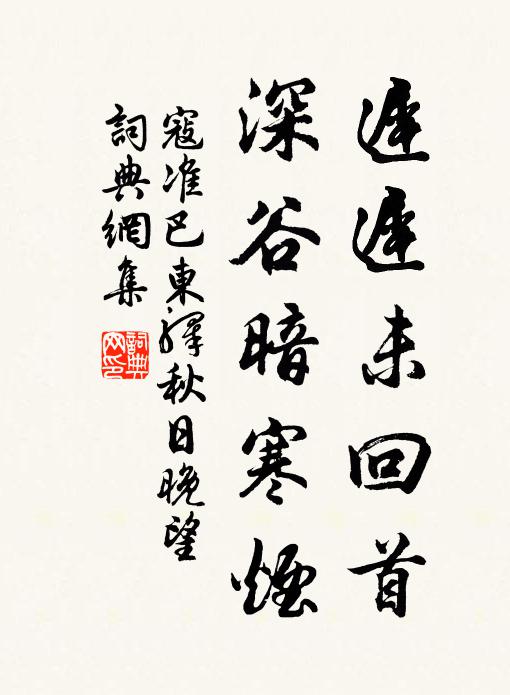 遲遲未回首
深谷暗寒煙
寇准巴東驛秋日晚望
詞典網集
詞典網印